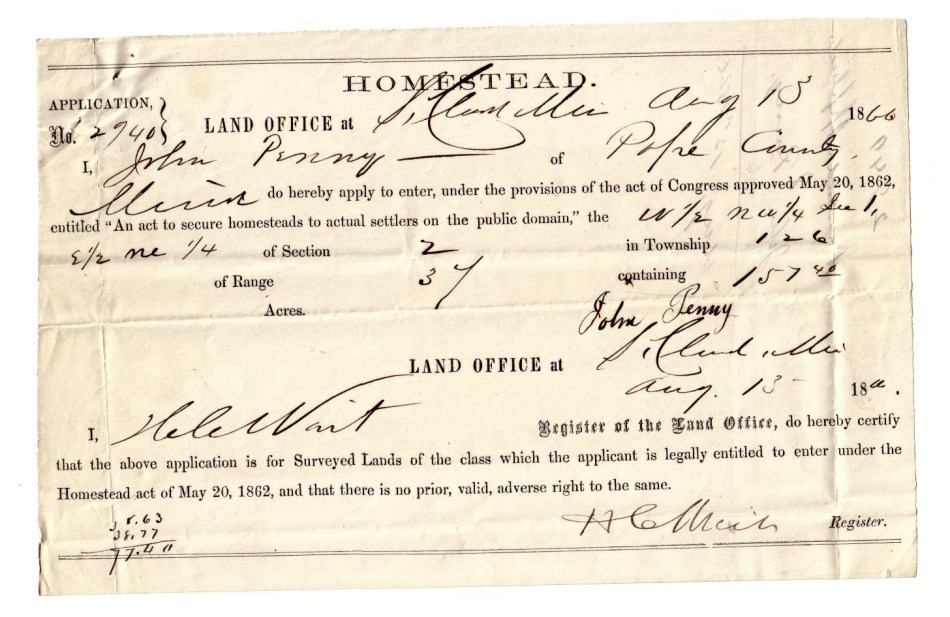 HOMESTEAD.
APPLICATION,
No. 2940
LAND OFFICE at St. Cloud Min Aug 13 1866
I, John Penny of Pope County
Minn do hereby apply to enter, under the provisions of the act of Congress approved May 20, 1862,
entitled "An act to secure homesteads to actual settlers on the public domain," the W 1/2 NW 1/4 Sec 1,
E 1/2 ne 1/4 of Section 2 in Township 126
of Range 37 containing 157 40
Acres.
John Penny
LAND OFFICE at St. Cloud, Min
Aug. 13 18
I, H C Wait Register of the Land Office, do hereby certify
that the above application is for Surveyed Lands of the class which the applicant is legally entitled to enter under the
Homestead act of May 20, 1862, and that there is no prior, valid, adverse right to the same.
38.63
38.77
77.40
H C Wait Register.